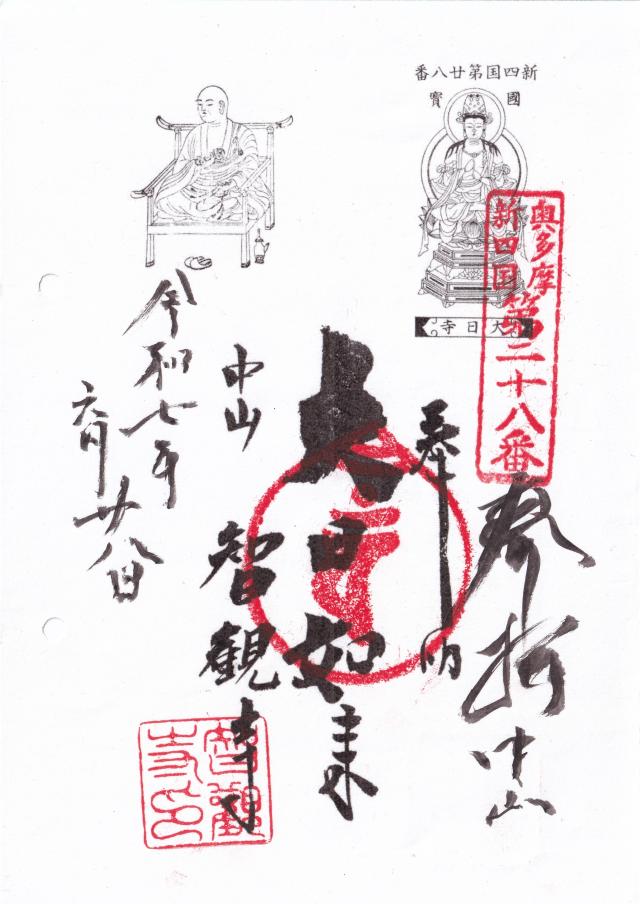 新四国第廿八番
國寳
大日寺
奥多摩
新四国第二十八番
参拝中山
奉
大日如来
中山
智觀寺
令和七年
六月廿八日
智觀
寺印